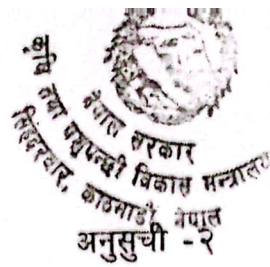 नेपाल सरकार
कृषि तथा पशुपन्छी विकास मन्त्रालय
सिंहदरबार, काठमाडौं, नेपाल
अनुसुची -२